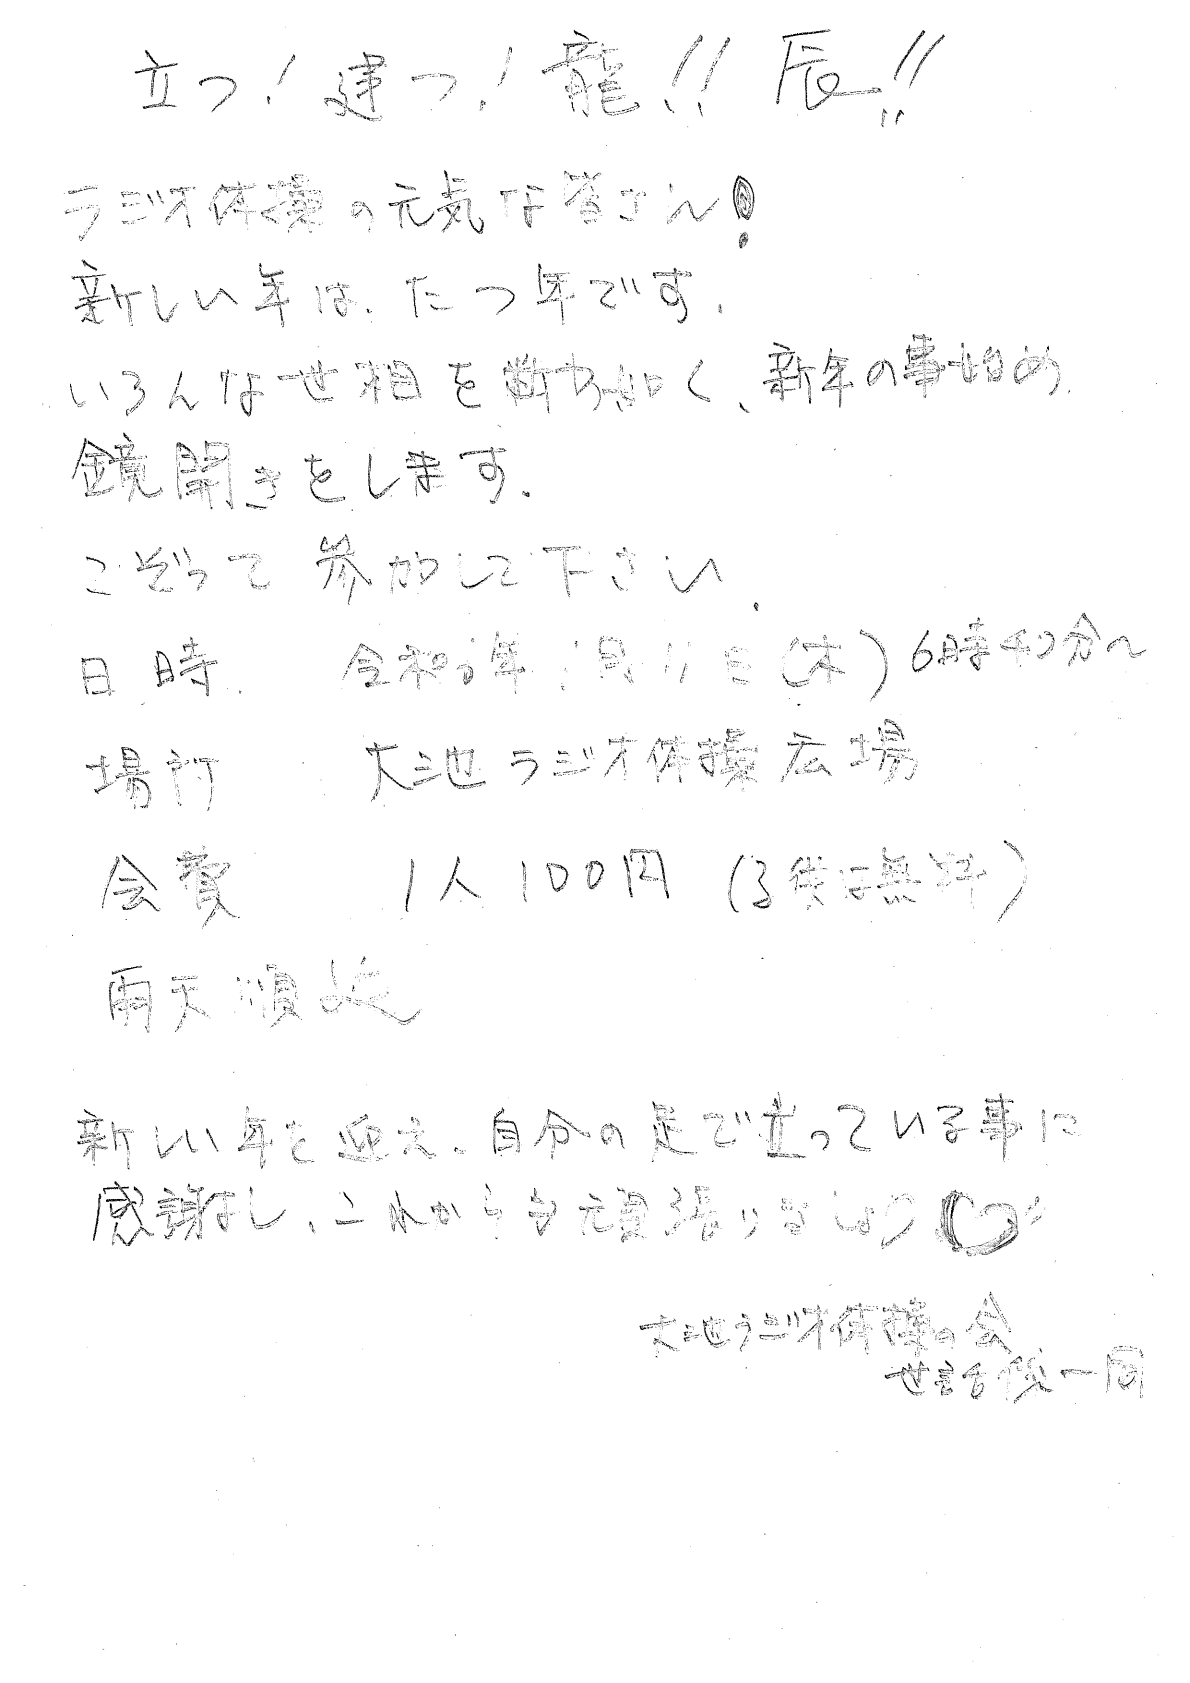 立つ！建つ！龍！！辰！！
ラジオ体操の元気な皆さん！
新しい年は、たつ年です。
いろんな世相を断ち切るべく、新年の事始め
鏡開きをします。
こぞって参加して下さい。
日時 令和6年1月11日(木)6時40分〜
場所 大池ラジオ体操広場
会費 1人100円(子供は無料)
雨天順延
新しい年を迎え、自分の足で立っている事に
感謝をし、これからも頑張りましょう
大池ラジオ体操の会
世話役一同